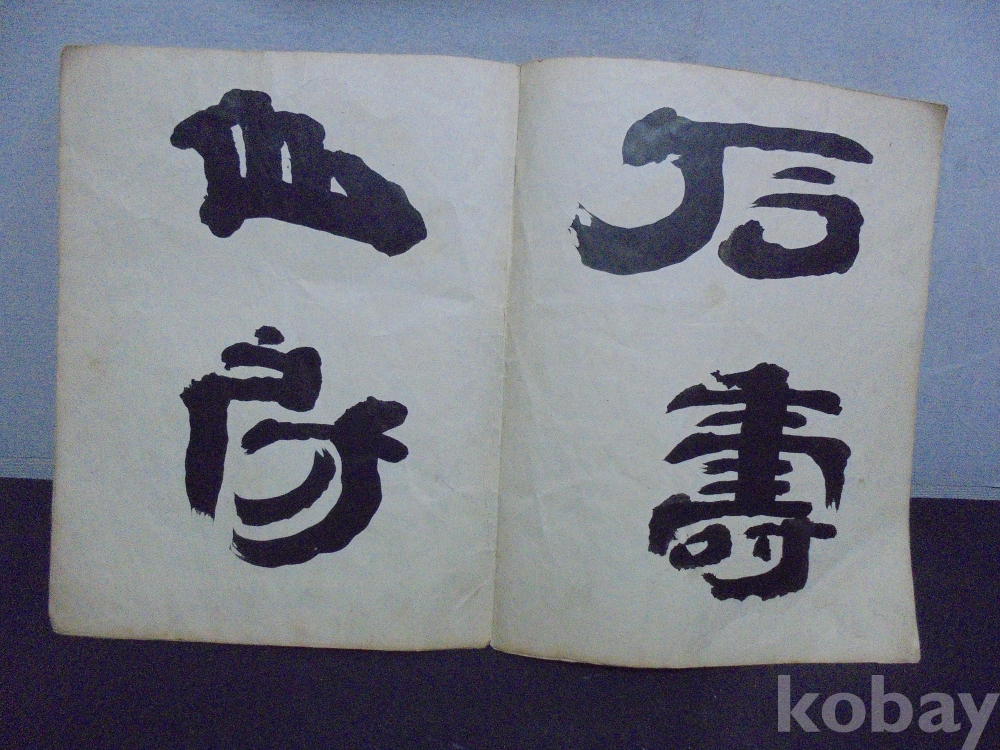 石壽
山房
kobay